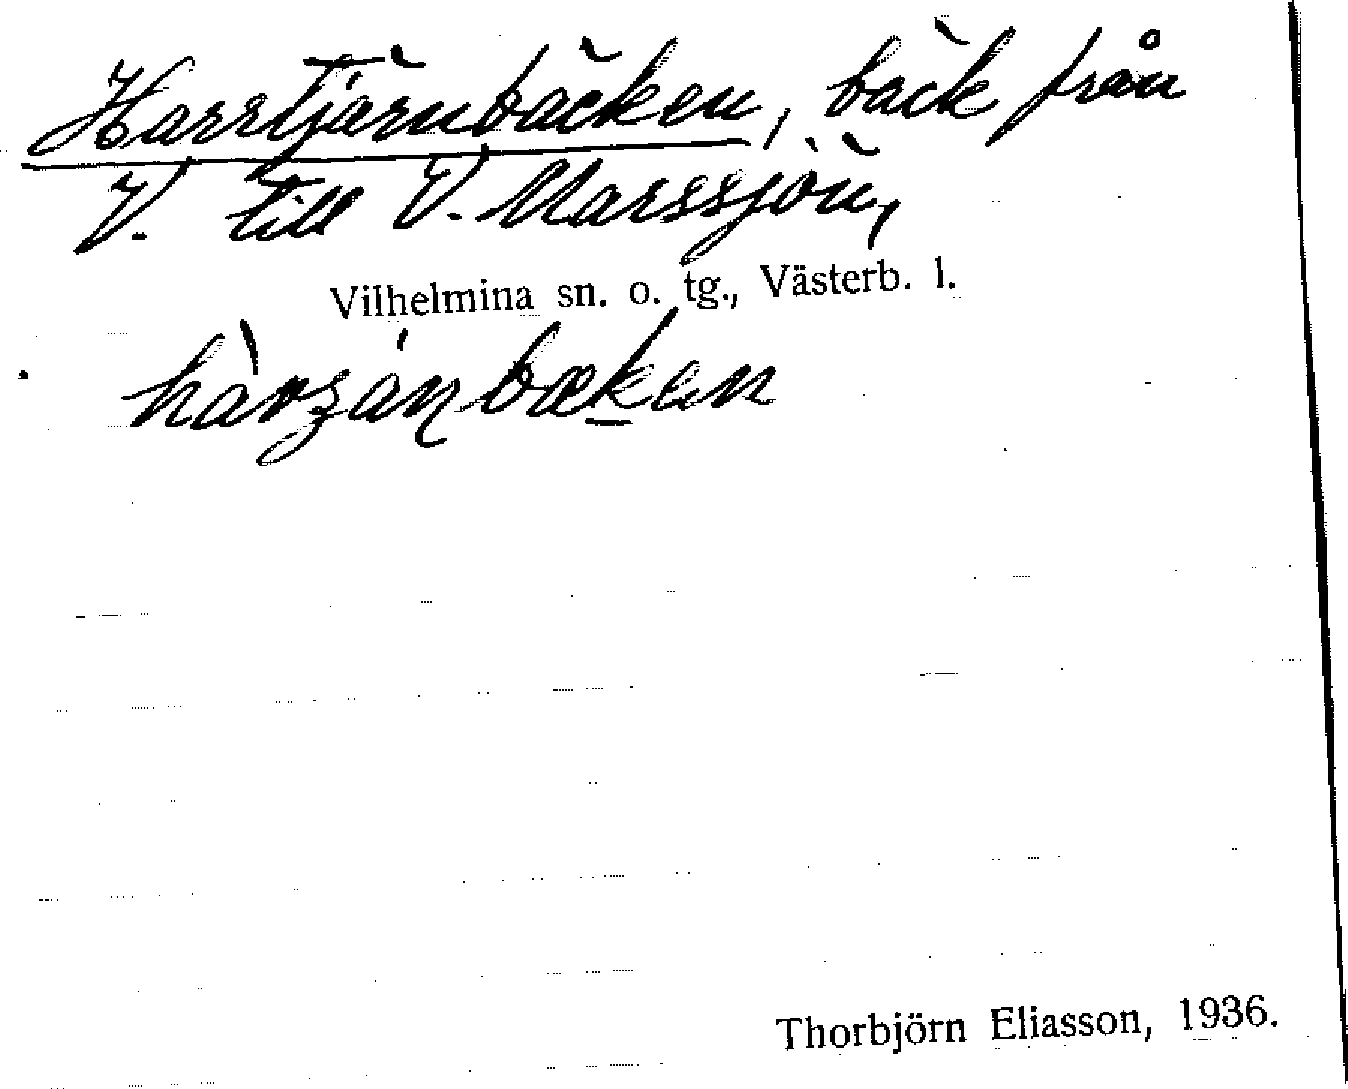 Harrtjärnbäcken, bäck från
V. till V. Marssjön,
Vilhelmina sn. o. tg., Västerb. l.
Thorbjörn Eliasson, 1936.